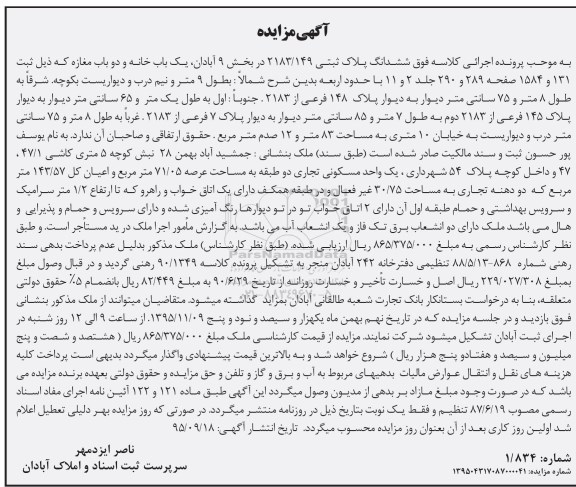 آگهی مزایده
به موجب پرونده اجرائی کلاسه فوق ششدانگ پلاک ثبتی ۲۱۸۳/۱۴۹ در بخش ۹ آبادان، یک باب خانه و دو باب مغازه که ذیل ثبت
۱۳۱ و ۱۵۸۴ صفحه ۲۸۹ و ۲۹۰ جلد ۲ و ۱۱ با حدود اربعه بدین شرح شمالاً : بطول ۹ متر و نیم درب و دیواریست بکوچه. شرقاً به
طول ۸ متر و ۷۵ سانتی متر دیوار به دیوار پلاک ۱۴۸ فرعی از ۲۱۸۳ . جنوباً : اول به طول یک متر و ۶۵ سانتی متر دیوار به دیوار
پلاک ۱۴۵ فرعی از ۲۱۸۳ دوم به طول ۷ متر و ۸۵ سانتی متر دیوار به دیوار پلاک ۷ فرعی از ۲۱۸۳ . غرباً به طول ۸ متر و ۷۵ سانتی
متر درب و دیواریست به خیابان ۱۰ متری به مساحت ۸۳ متر و ۱۲ صدم متر مربع . حقوق ارتفاقی و صاحبان آن ندارد. به نام یوسف
پور حسون ثبت و سند مالکیت صادر شده است (طبق سند) ملک بنشانی : جمشید آباد بهمن ۲۸ نبش کوچه ۵ متری کاشی ۴۷/۱ ،
۴۷ و داخل کوچه پلاک ۵۴ شهرداری ، یک واحد مسکونی تجاری دو طبقه به مساحت عرصه ۷۱/۰۵ متر مربع و اعیان کل ۱۴۳/۵۷ متر
مربع که دو دهنه تجاری به مساحت ۳۰/۷۵ غیر فعال و در طبقه همکف دارای یک اتاق خواب و راهرو که تا ارتفاع ۱/۲ متر سرامیک
و سرویس بهداشتی و حمام طبقه اول آن دارای ۲ اتاق خواب تو در تو دیوارها رنگ آمیزی شده و دارای سرویس و حمام و پذیرایی و
هال می باشد ملک دارای دو انشعاب برق تک فاز و یک انشعاب آب می باشد. به گزارش مأمور اجرا ملک در ید مستأجر است. و طبق
نظر کارشناس رسمی به مبلغ ۸۶۵/۳۷۵/۰۰۰ ریال ارزیابی شده. (طبق نظر کارشناس) ملک مذکور بدلیل عدم پرداخت بدهی سند
رهنی شماره ۸۶۸-۸۸/۵/۱۳ تنظیمی دفترخانه ۲۴۲ آبادان منجر به تشکیل پرونده کلاسه ۹۰/۱۳۴۹ رهنی گردید و در قبال وصول مبلغ
بمبلغ ۲۲۹/۰۲۷/۳۰۸ ریال اصل و خسارت تأخیر و خسارت روزانه از تاریخ ۹۰/۶/۲۹ به مبلغ ۸۲/۴۴۹ ریال بانضمام ۵٪ حقوق دولتی
متعلقه، بنا به درخواست بستانکار بانک تجارت شعبه طالقانی آبادان بمزاید گذاشته میشود. متقاضیان میتوانند از ملک مذکور بنشانی
فوق بازدید و در جلسه مزایده که در تاریخ نهم بهمن ماه یکهزار و سیصد و نود و پنج ۱۳۹۵/۱۱/۰۹. از ساعت ۹ الی ۱۲ روز شنبه در
اجرای ثبت آبادان تشکیل میشود شرکت نمایند. مزایده از قیمت کارشناسی ملک مبلغ ۸۶۵/۳۷۵/۰۰۰ ریال ( هشتصد و شصت و پنج
میلیون و سیصد و هفتادو پنج هزار ریال ) شروع خواهد شد و به بالاترین قیمت پیشنهادی واگذار میگردد بدیهی است پرداخت کلیه
هزینه های نقل و انتقال عوارض مالیات بدهیهای مربوط به آب و برق و گاز و تلفن و حق مزایده و حقوق دولتی بعهده برنده مزایده می
باشد که در صورت وجود مبلغ مازاد بر بدهی از مدیون وصول میگردد این آگهی طبق ماده ۱۲۱ و ۱۲۲ آئین نامه اجرای مفاد اسناد
رسمی مصوب ۸۷/۶/۱۹ تنظیم و فقط یک نوبت بتاریخ ذیل در روزنامه منتشر میگردد. در صورتی که روز مزایده بهر دلیلی تعطیل اعلام
شد اولین روز کاری بعد از آن بعنوان روز مزایده محسوب میگردد. تاریخ انتشار آگهی: ۹۵/۰۹/۱۸
ناصر ایزدمهر
سرپرست ثبت اسناد و املاک آبادان
شماره: ۱/۸۳۴
شماره مزایده: ۱۳۹۵۰۴۳۱۷۰۸۷۰۰۰۰۴۱